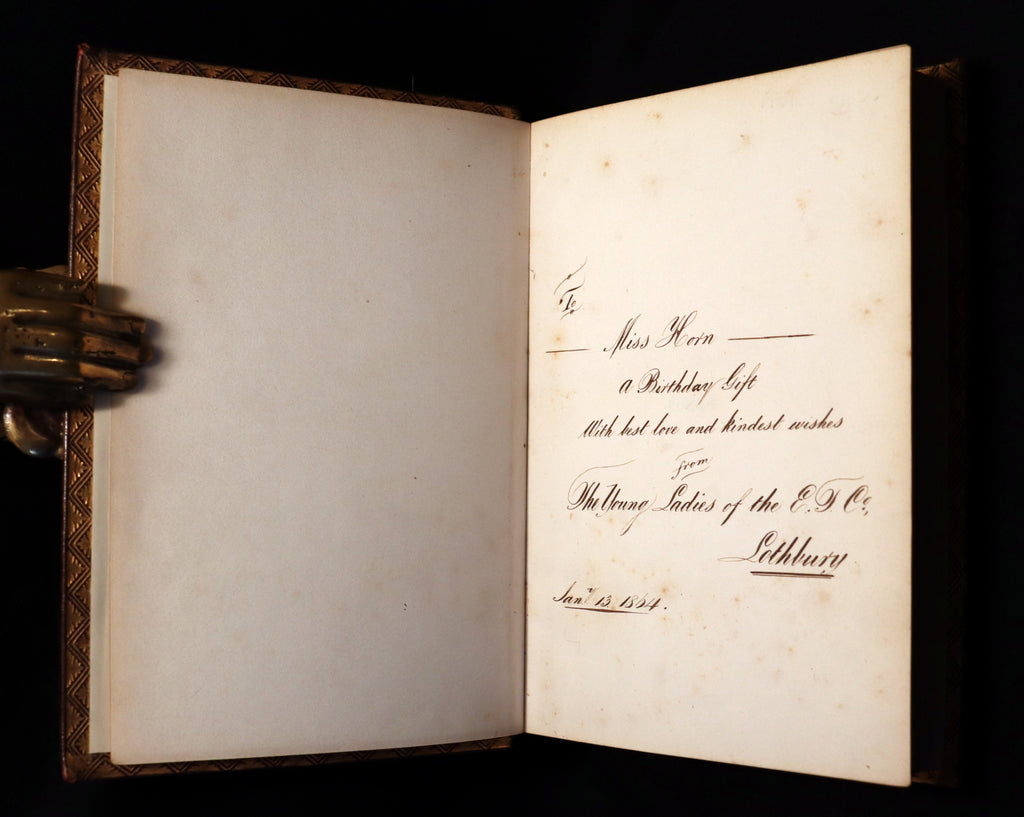 To
Miss Horn
a Birthday Gift
With best love and kindest wishes
from
The Young Ladies of the E. T. Co.,
Lothbury
Jany 13 1864.